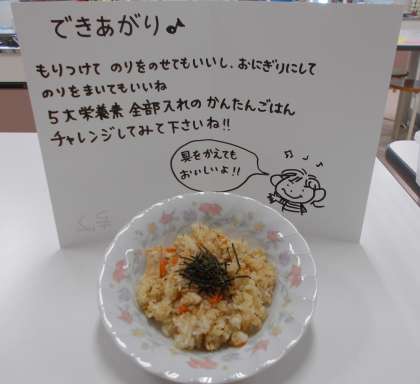 できあがり♪
もりつけて のりをのせてもいいし、おにぎりにして
のりをまいてもいいね
5大栄養素 全部入れの かんたんごはん
チャレンジしてみて下さいね!!
具をかえても
おいしいよ!!